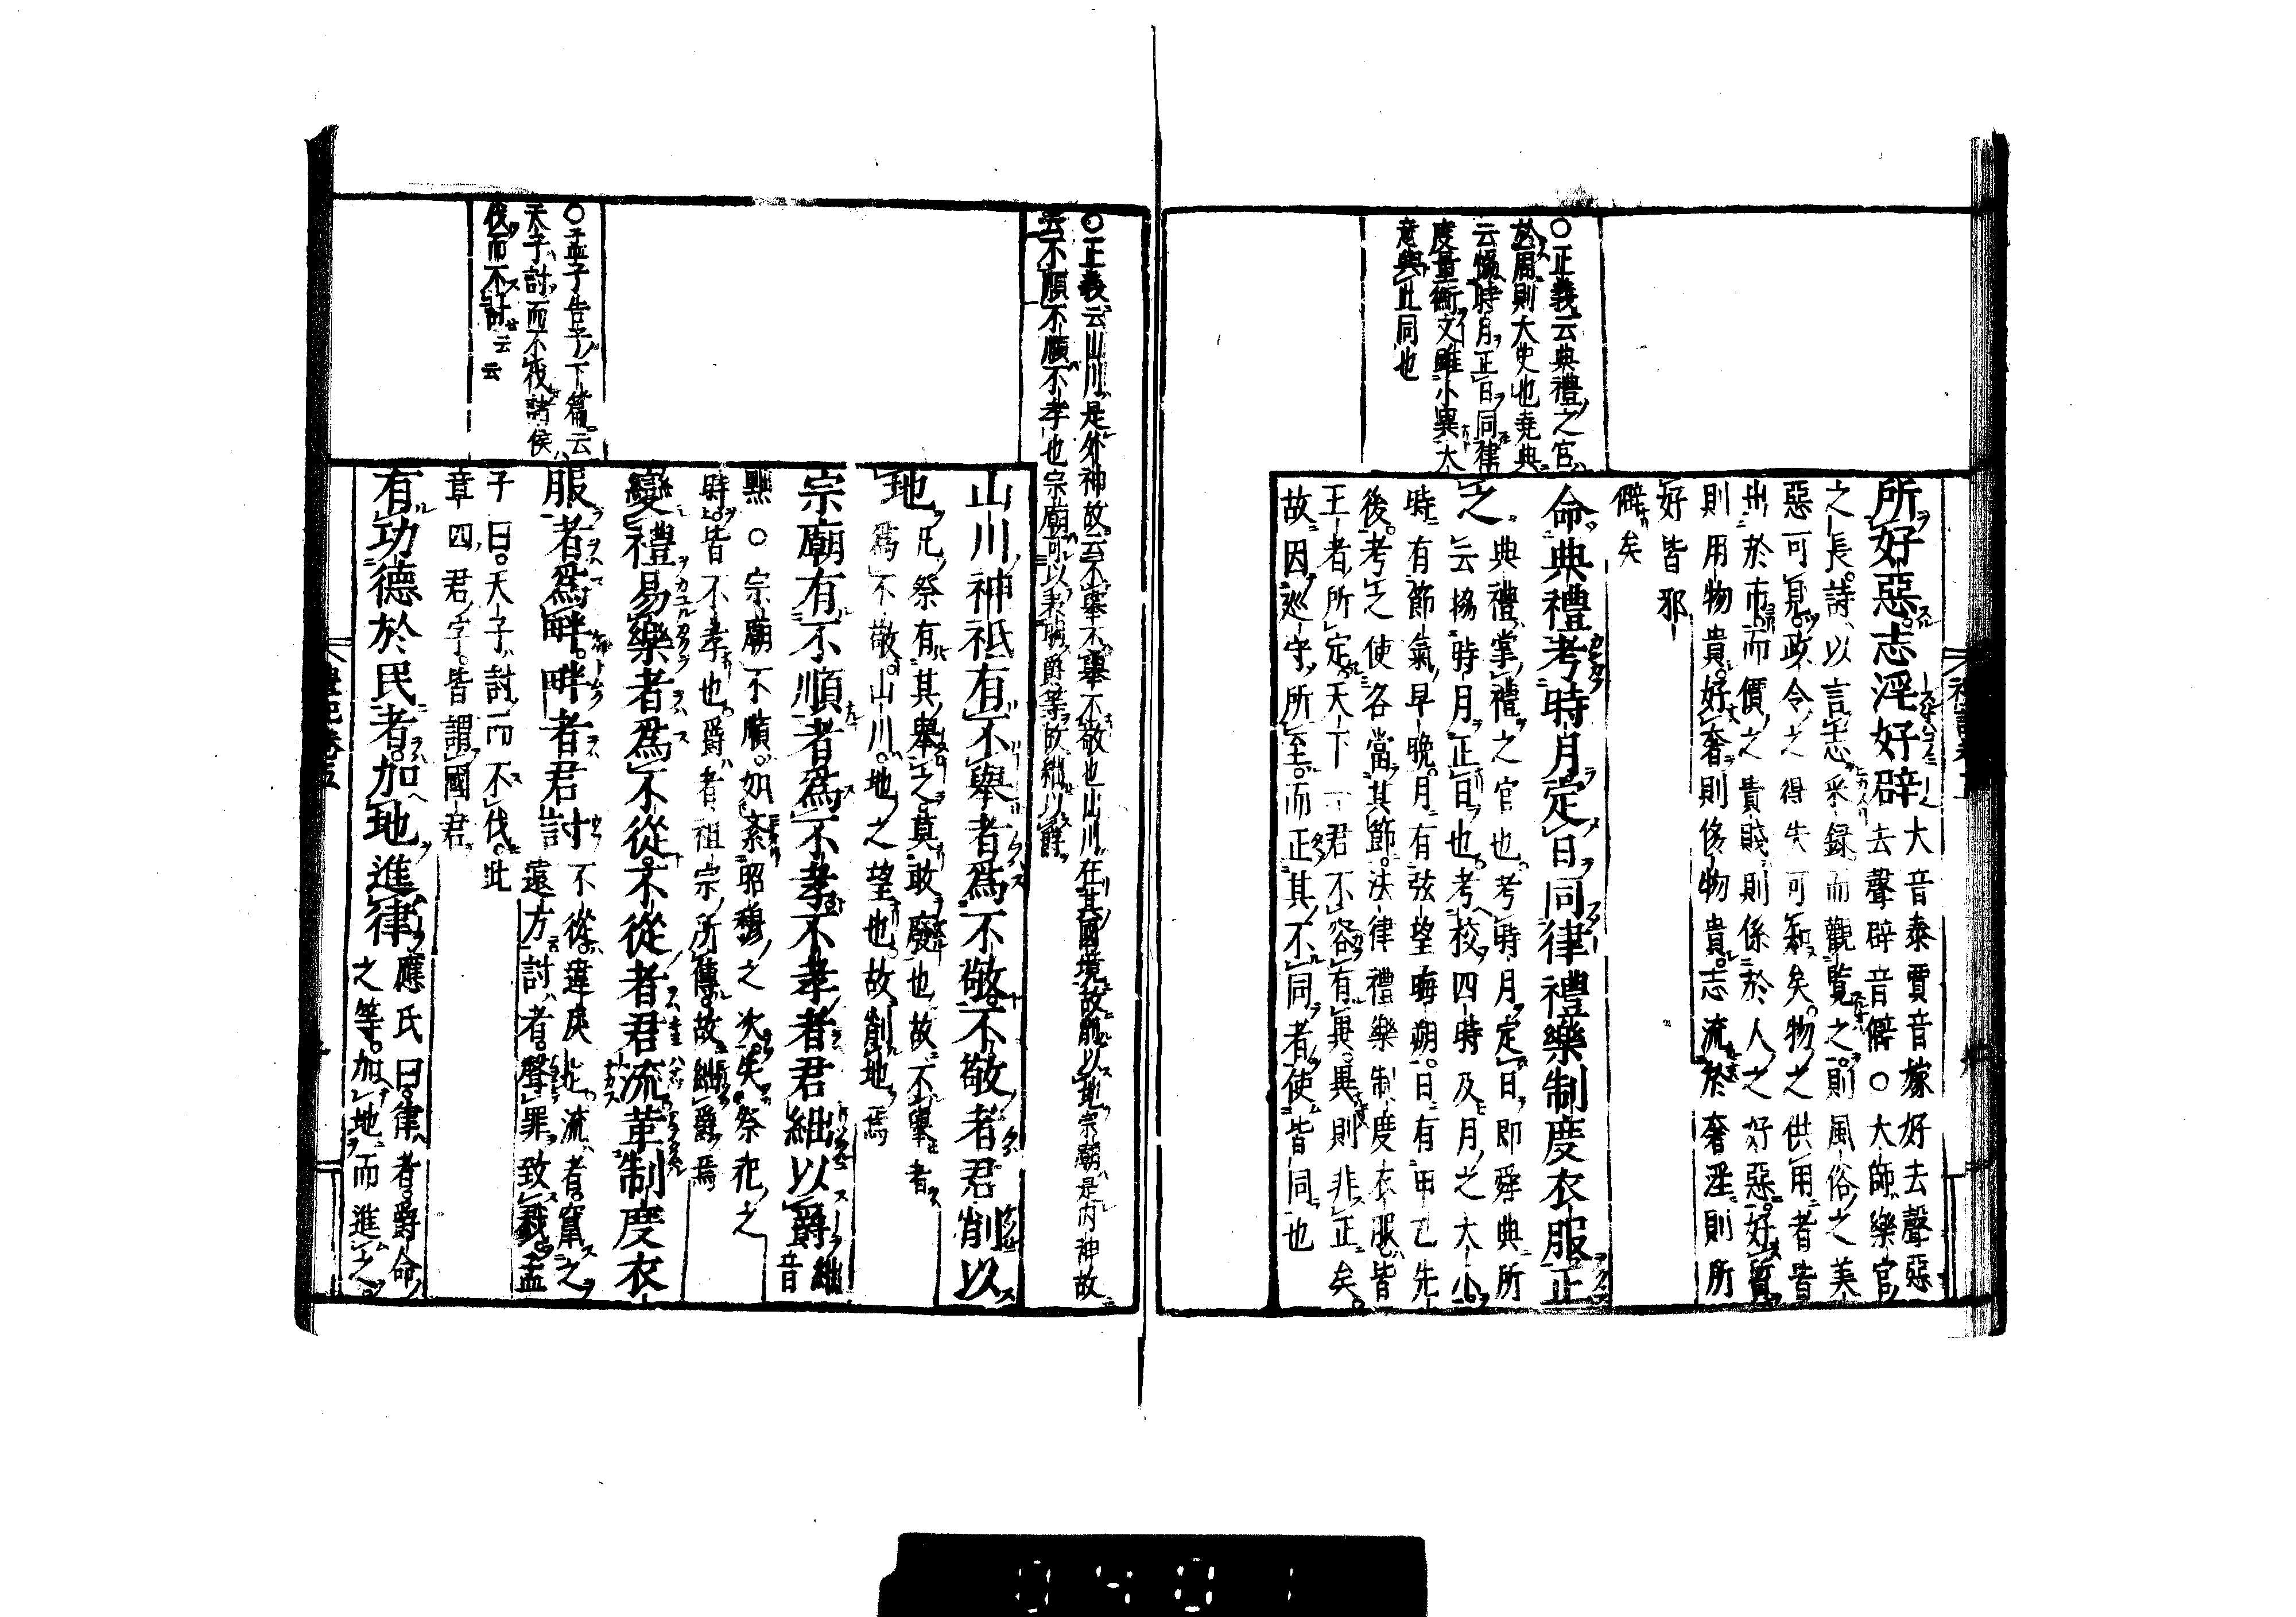 ○正義云典禮之官
於周則大史也堯典
云協時月正日同律
度量衡文雖小異大
意與此同也
所好惡志淫好辟大音泰賈音嫁好去聲惡
去聲辟音僻○大師樂官
之長詩以言志采錄而觀覽之則風俗之美
惡可見政令之得失可知矣物之供用者皆
出於市而價之貴賤則係於人之好惡好質
則用物貴好奢則侈物貴志流於奢淫則所
好皆邪
僻矣
命典禮考時月定日同律禮樂制度衣服正
之典禮掌禮之官也考時月定日即舜典所
云協時月正日也考校四時及月之大小
時有節氣早晚月有弦望晦朔日有甲乙先
後考之使各當其節法律禮樂制度衣服皆
王者所定天下一君不容有異異則非正矣
故因巡守所至而正其不同者使皆同也
○正義云山川是外神故云不舉不舉不敬也山川在其國境故削以地宗廟是内神故
云不順不順不孝也宗廟可以表明爵等故絀以爵
山川神祇有不舉者爲不敬不敬者君削以
地凡祭有其舉之莫敢廢也故不舉者
爲不敬山川地之望也故削地焉
宗廟有不順者爲不孝不孝者君絀以爵絀
音
黜○宗廟不順如紊昭穆之次失祭祀之
時皆不孝也爵者祖宗所傳故絀爵焉
變禮易樂者爲不從不從者君流革制度衣
服者爲畔畔者君討不從違戾也流者竄之
遠方討者聲罪致戮孟
子曰天子討而不伐此
章四君字皆謂國君
○孟子告子下篇云
天子討而不伐諸侯
伐而不討云云
有功德於民者加地進律應氏曰律者爵命
之等加地而進之
禮記卷五